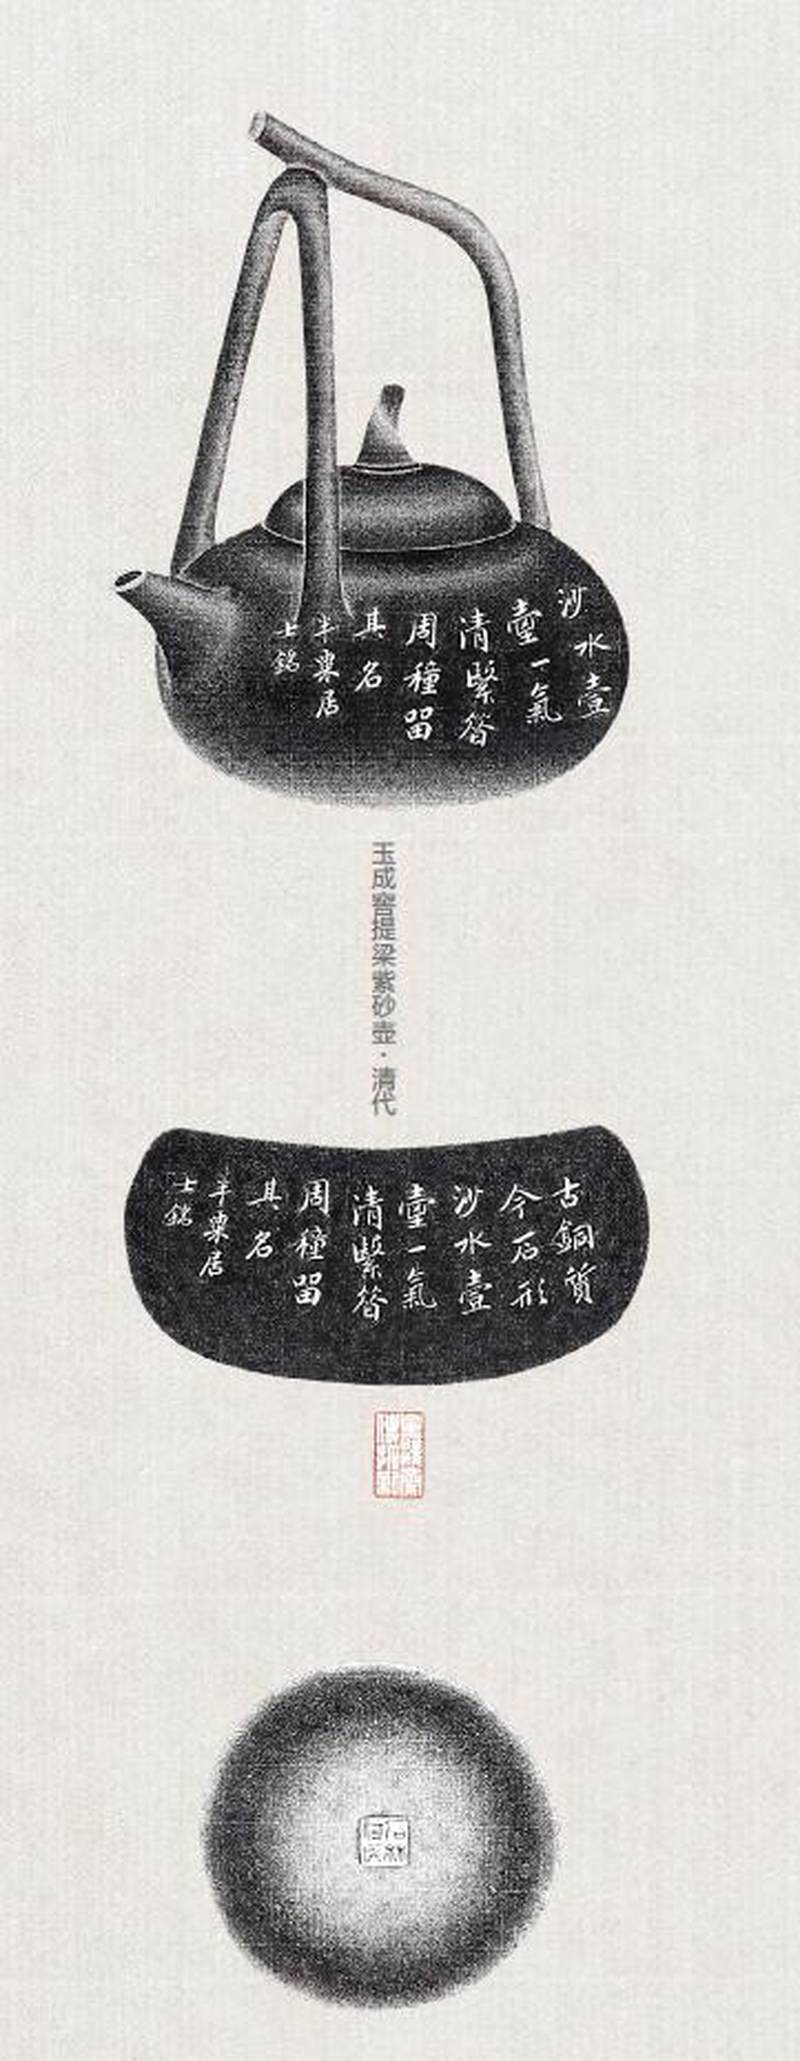 沙水壺
壷一氣
清緊
周種留
其名
半粟居
士銘
玉成窖提梁紫砂壶·清代
古銅質
今石形
沙水壺
壷一氣
清緊
周種留
其名
半粟居
士銘